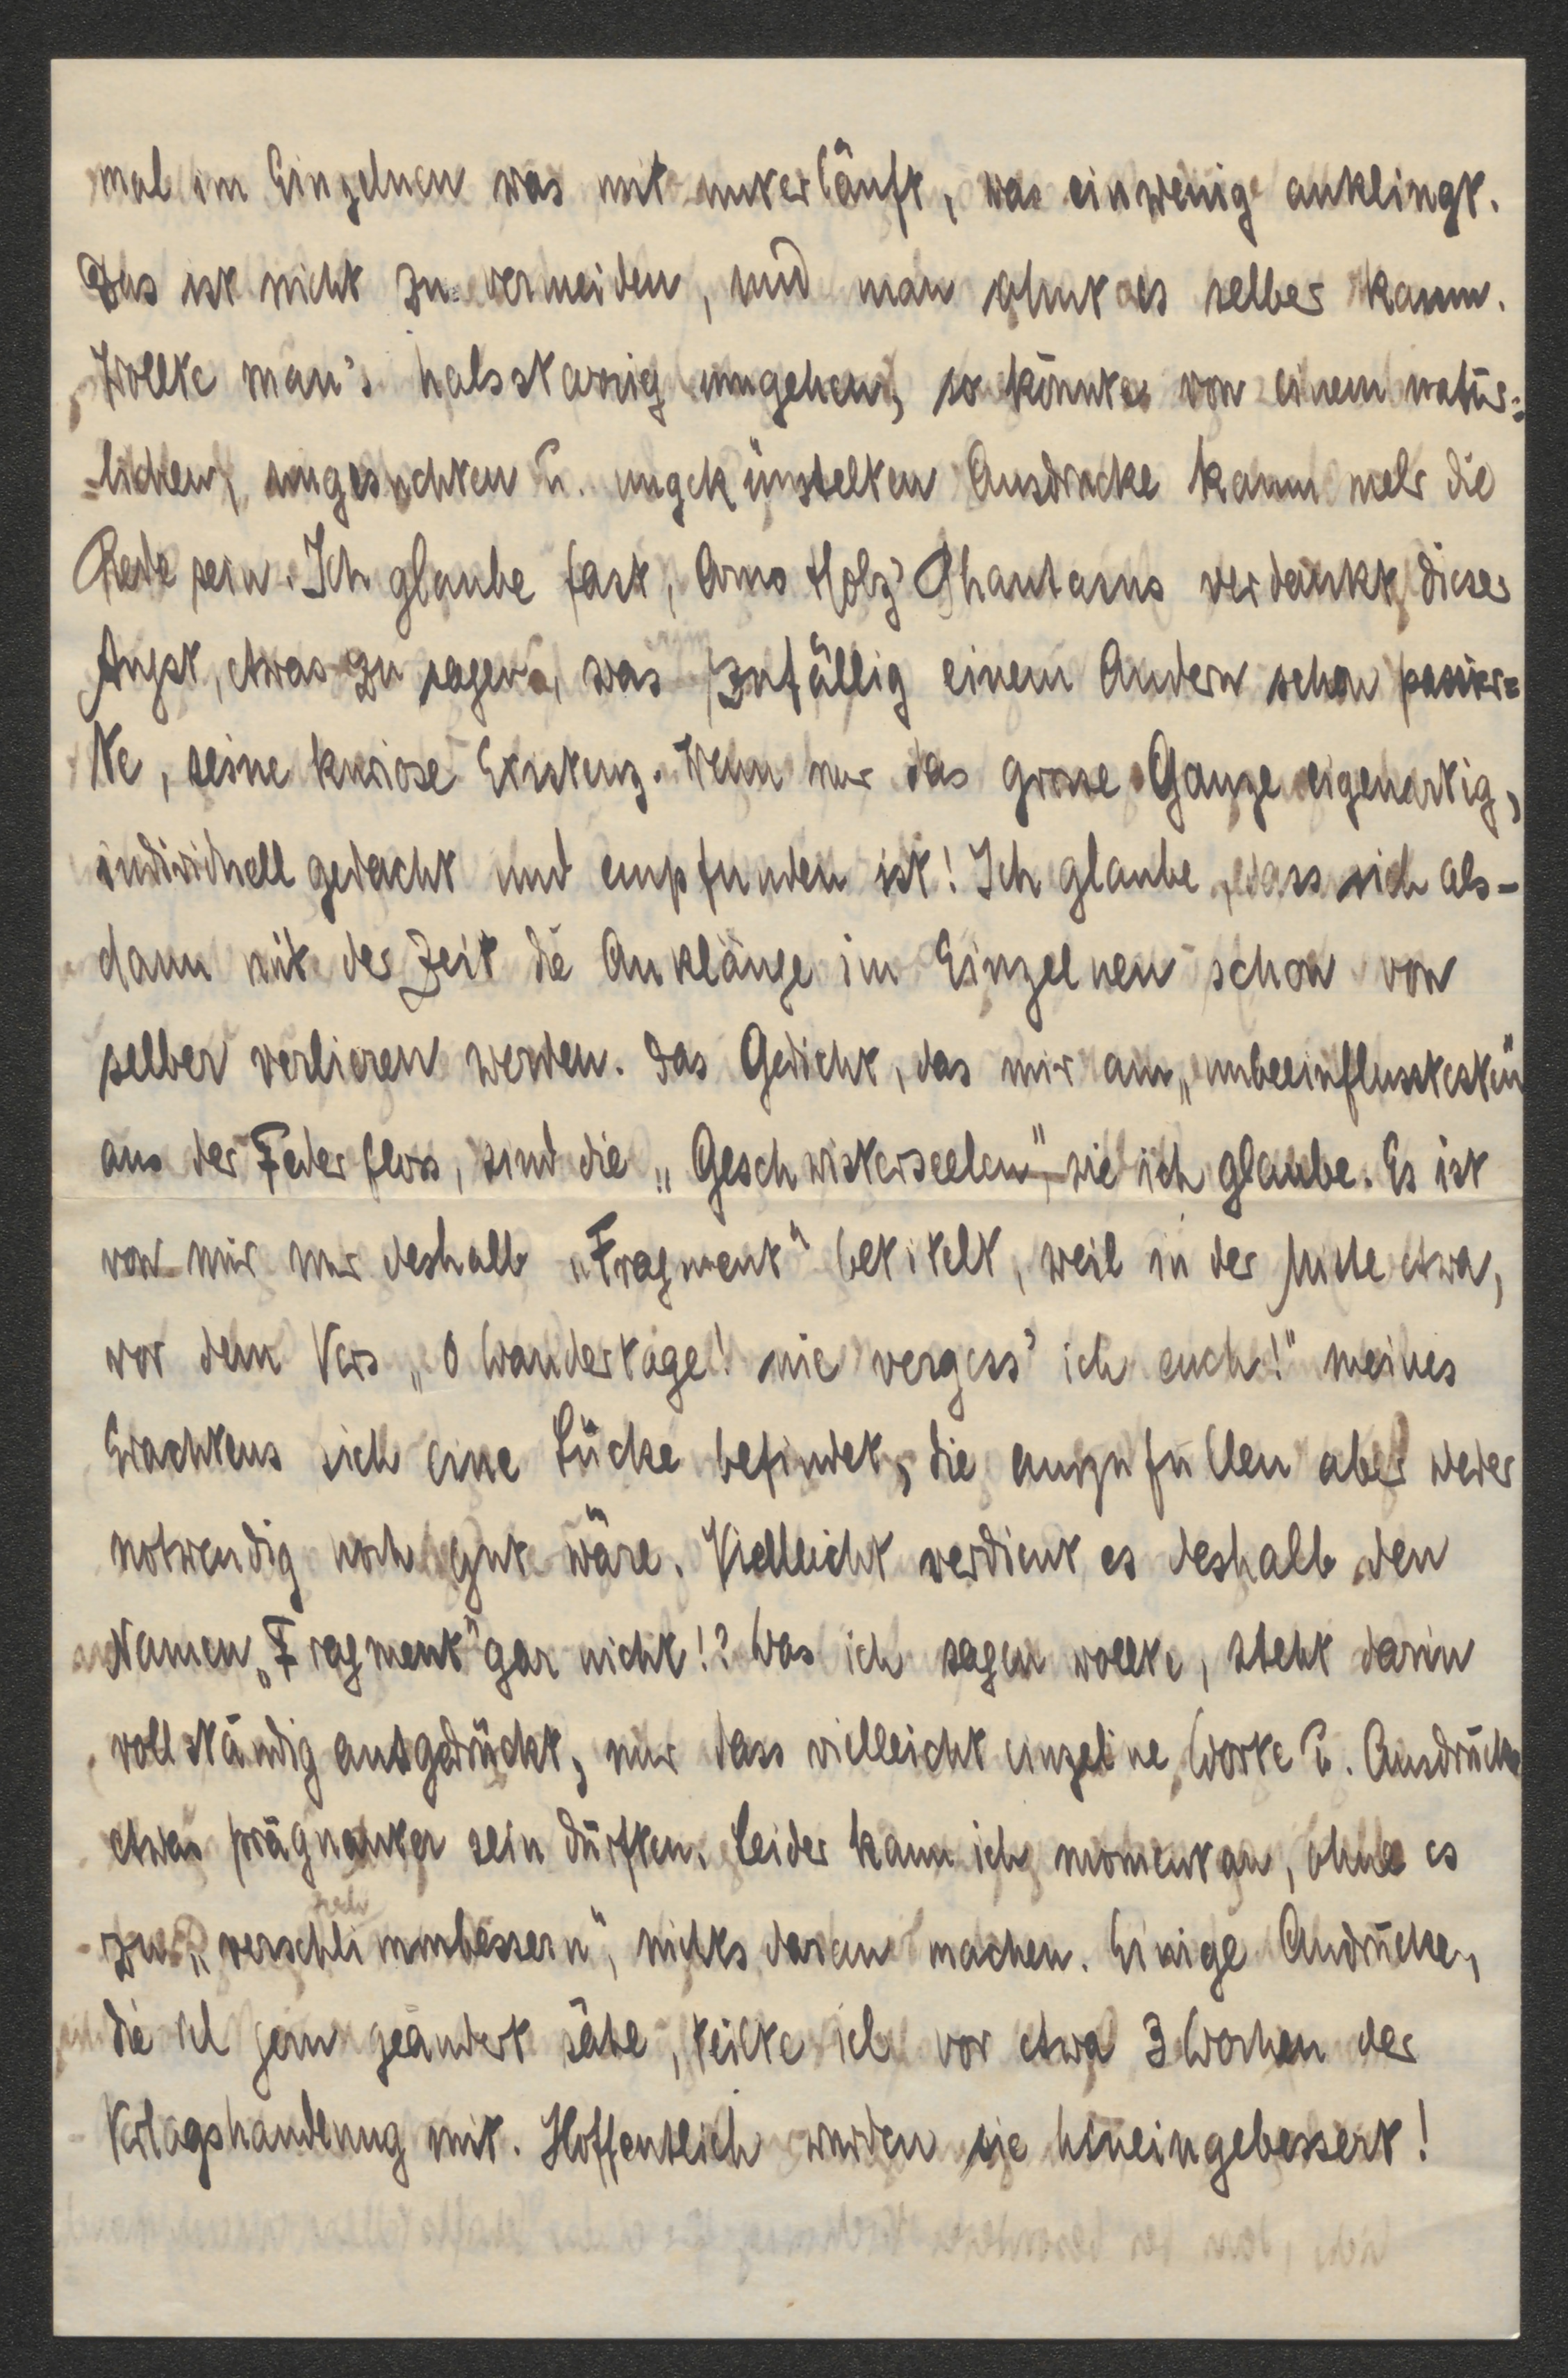 mal im Einzelnen was mit unterläuft, was ein wenig anklingt.
Das ist nicht zu vermeiden, und man ahnt es selber kaum.
Wollte man's halsstarrig umgehen, so könnte von einem natür=
=lichen, ungesuchten u. ungekünstelten Ausdrucke kaum mehr die
Rede sein. Ich glaube fast, Arno Holz' Phantasus verdankt dieser
Angst, etwas zu sagen, was zufällig einem Andern schon passier=
te, seine kuriose Existenz. Wenn nur das grosse Ganze eigenartig,
individuell gedacht und empfunden ist! Ich glaube, dass sich als-
dann mit der Zeit die Anklänge im Einzelnen schon von
selber verlieren werden. Das Gedicht, das mir am „unbeeinflusstesten
aus der Feder floss, sind die „Geschwisterseelen", wie ich glaube. Es ist
von mir nur deshalb „Fragment" betitelt, weil in der Mitte etwa,
vor dem Vers „O Wandertage! nie vergess' ich euch!" meines
Erachtens sich eine Lücke befindet, die auszufüllen aber weder
notwendig noch gut wäre. Vielleicht verdient es deshalb den
Namen „Fragment" gar nicht!? Was ich sagen wollte, steht darin
vollständig ausgedrückt, nur dass vielleicht einzelne Worte u. Ausdrücke
etwas prägnanter sein dürften. Leider kann ich momentan, ohne es
zu „verschlimmbessern", nichts daran machen. Einige Audrücke,
die ich gern geändert sähe, teilte ich vor etwa 3 Wochen der
Verlagshandlung mit. Hoffentlich wurden sie hineingebessert!